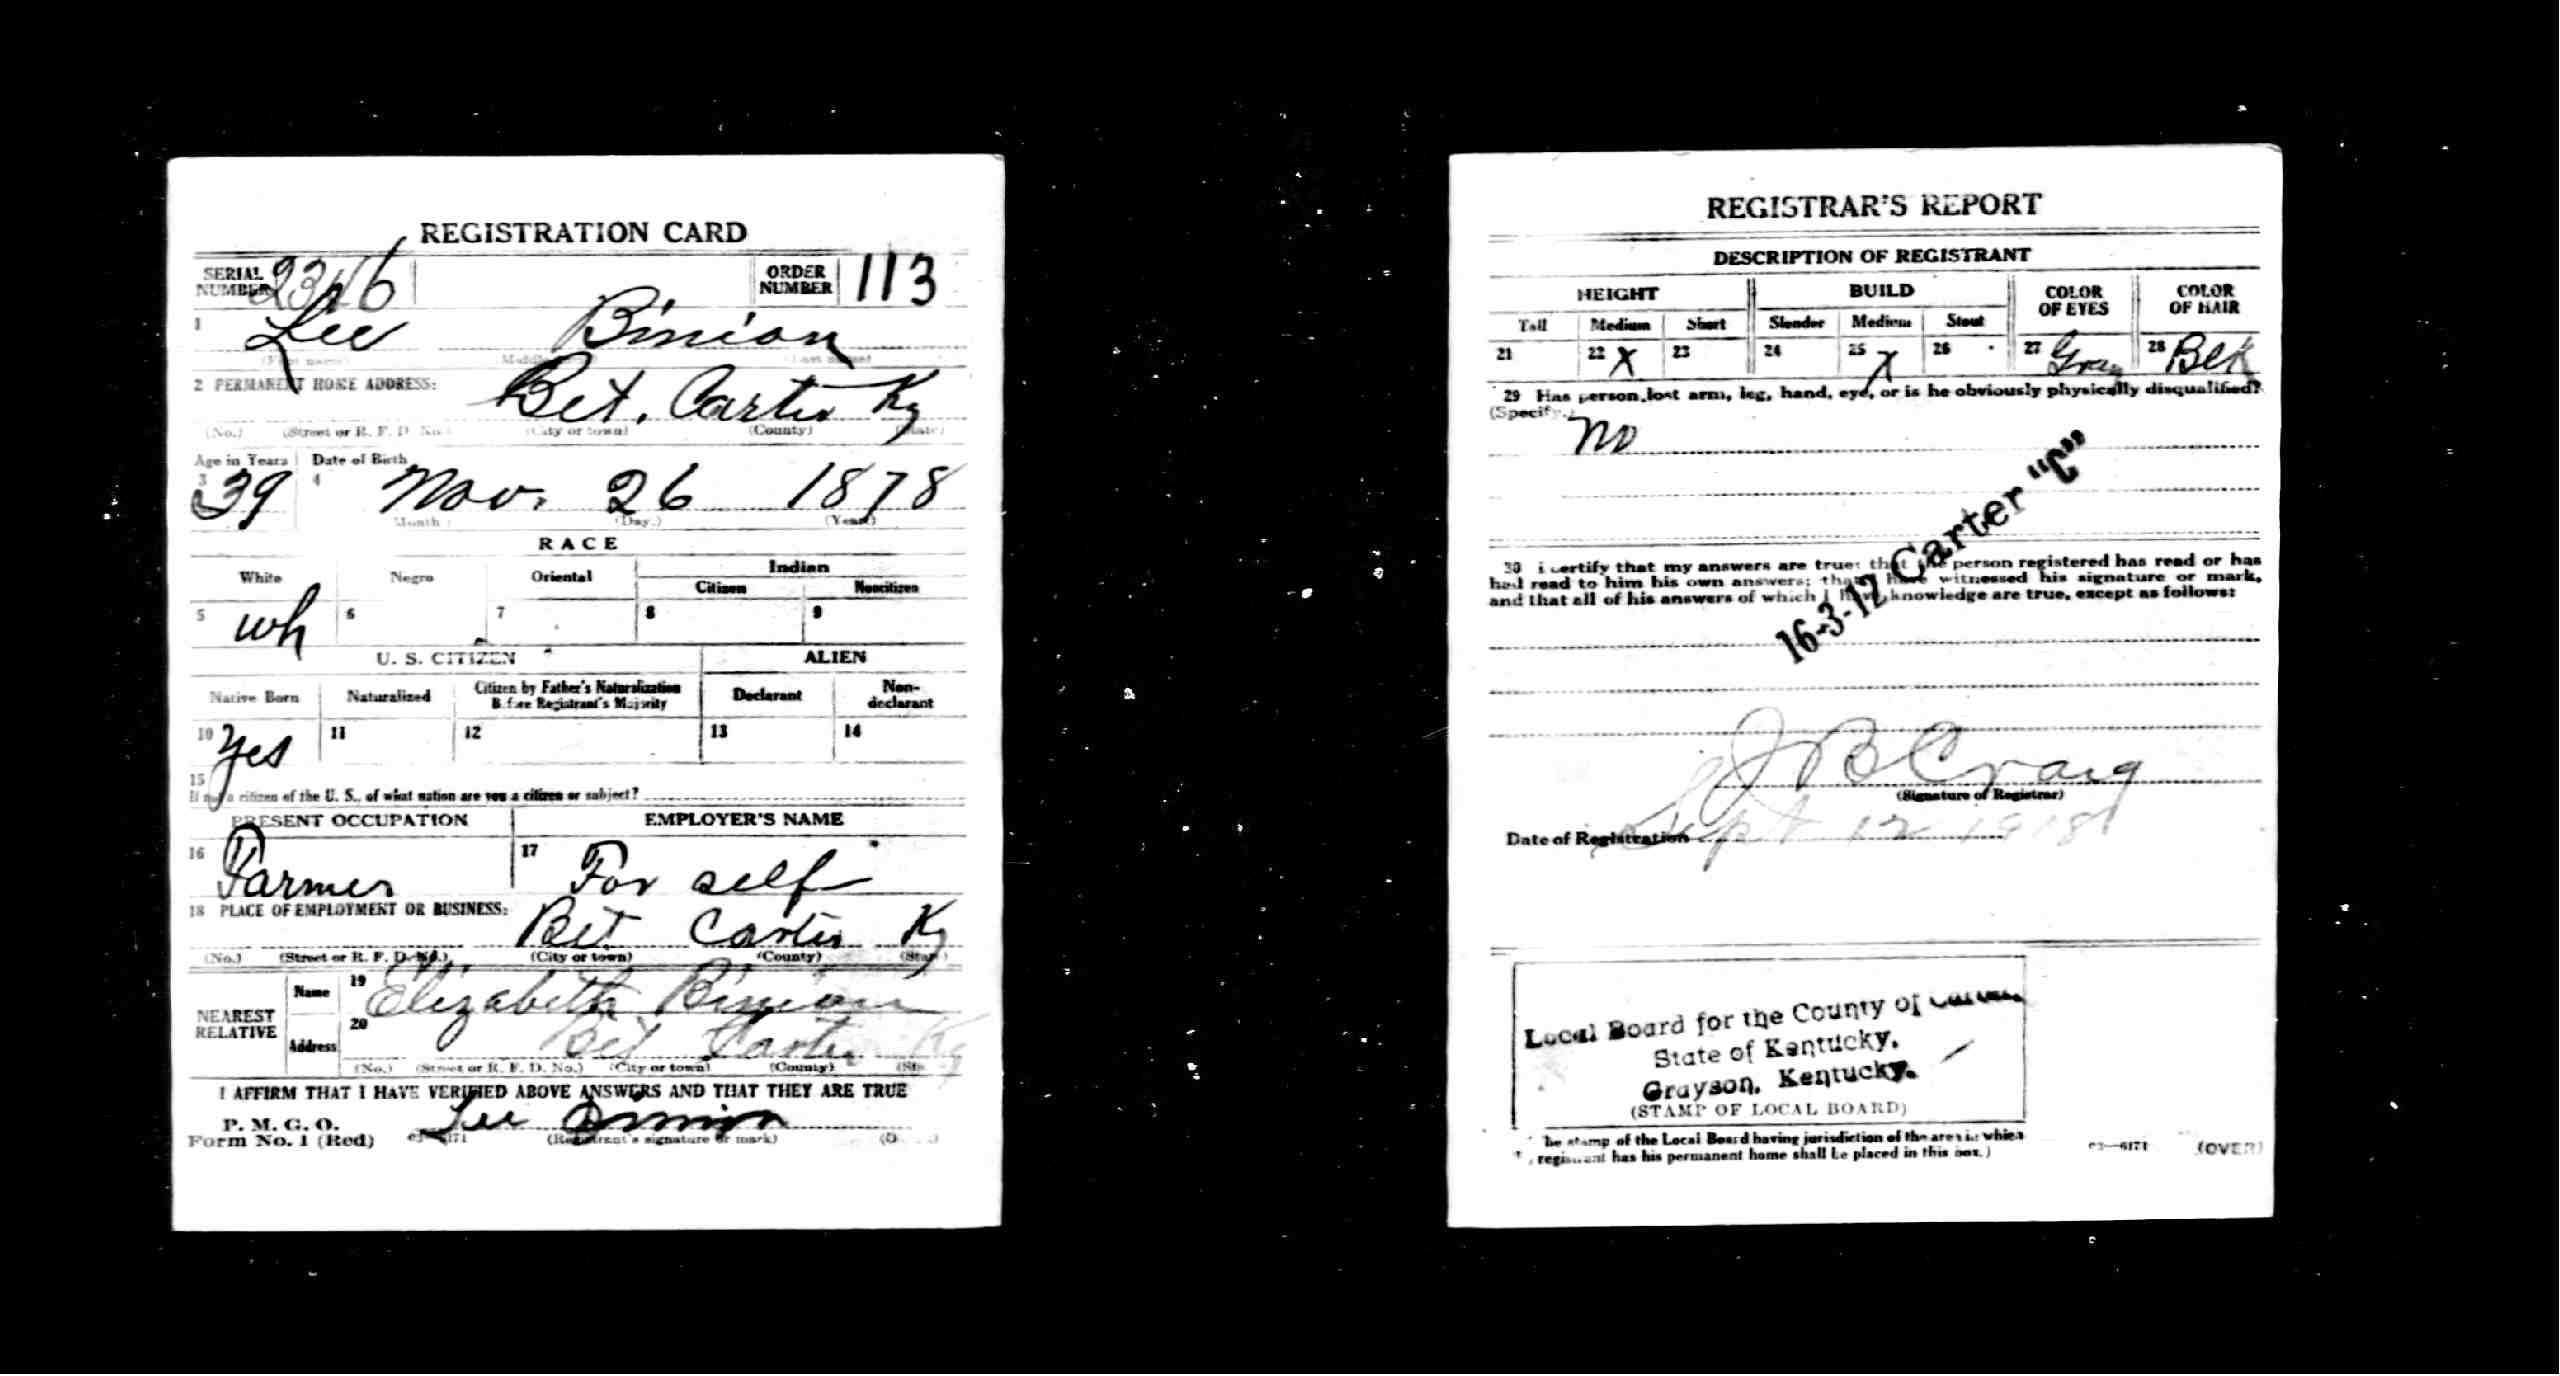 REGISTRATION CARD
SERIAL NUMBER 2346
ORDER NUMBER 113
1 Lee Binion
(First name) (Middle name) (Last name)
2 PERMANENT HOME ADDRESS:
Bet. Carter Ky
(No.) (Street or R. F. D. No.) (City or town) (County) (State)
Age in Years Date of Birth
3 39 4 Nov. 26 1878
(Month) (Day.) (Year)
RACE
White Negro Oriental Indian
Citizen Noncitizen
5 wh 6 7 8 9
U. S. CITIZEN ALIEN
Native Born Naturalized Citizen by Father's Naturalization Before Registrant's Majority Declarant Non-declarant
10 Yes 11 12 13 14
15
If not a citizen of the U. S., of what nation are you a citizen or subject?
PRESENT OCCUPATION EMPLOYER'S NAME
16 Farmer 17 For self
18 PLACE OF EMPLOYMENT OR BUSINESS:
Bet Carter Ky
(No.) (Street or R. F. D. No.) (City or town) (County) (State)
NEAREST RELATIVE
Name 19 Elizabeth Binion
Address 20 Bet Carter Ky
(No.) (Street or R. F. D. No.) (City or town) (County)
I AFFIRM THAT I HAVE VERIFIED ABOVE ANSWERS AND THAT THEY ARE TRUE
P. M. G. O.
Form No. 1 (Red) Lee Binion
(Registrant's signature or mark)
REGISTRAR'S REPORT
DESCRIPTION OF REGISTRANT
HEIGHT BUILD COLOR OF EYES COLOR OF HAIR
Tall Medium Short Slender Medium Stout
21 22 X 23 24 25 X 26 27 Gray 28 Blk
29 Has person lost arm, leg, hand, eye, or is he obviously physically disqualified?
(Specify.)
no
16-3-12 Carter "C"
30 I certify that my answers are true; that the person registered has read or has
had read to him his own answers; that I have witnessed his signature or mark,
and that all of his answers of which I have knowledge are true, except as follows:
J B Craig
(Signature of Registrar)
Date of Registration Sept 12 1918
Local Board for the County of Carter,
State of Kentucky,
Grayson, Kentucky.
(STAMP OF LOCAL BOARD)
The stamp of the Local Board having jurisdiction of the area in which
registrant has his permanent home shall be placed in this box.)
03—6171 (OVER)